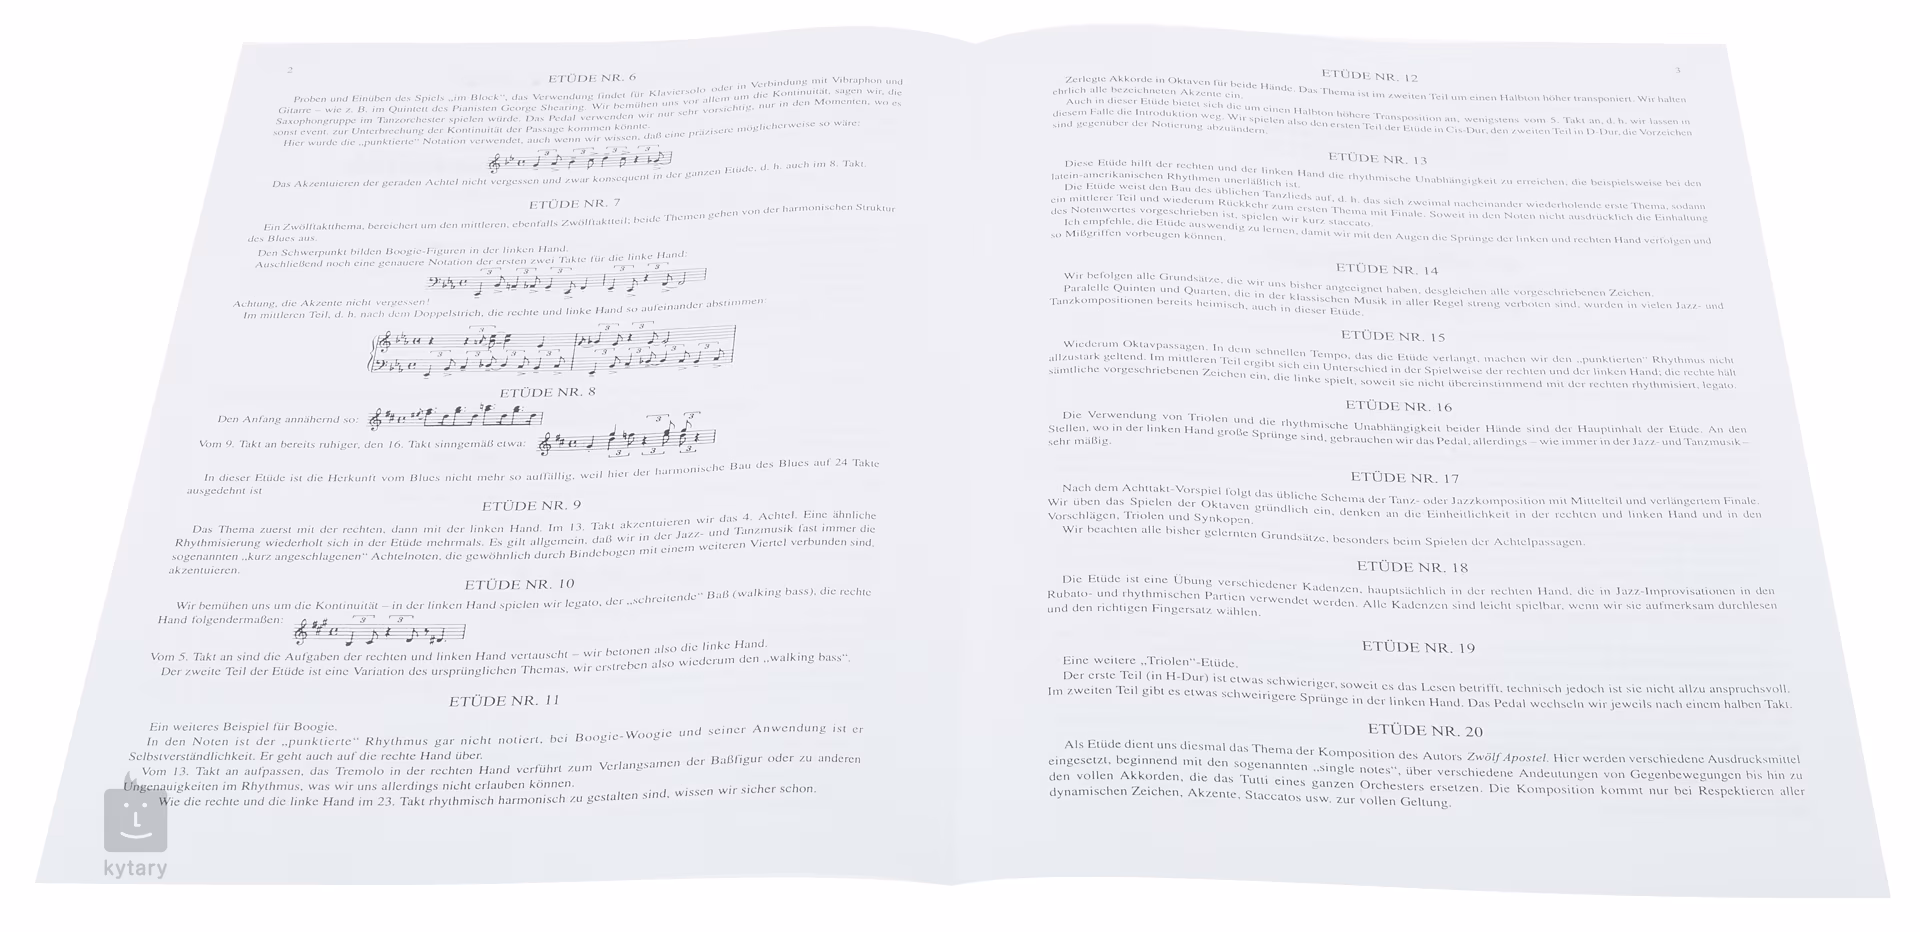 2
ETÜDE NR. 6
Proben und Einüben des Spiels „im Block“, das Verwendung findet für Klaviersolo oder in Verbindung mit Vibraphon und
Gitarre – wie z. B. im Quintett des Pianisten George Shearing. Wir bemühen uns vor allem um die Kontinuität, sagen wir, die
Saxophongruppe im Tanzorchester spielen würde. Das Pedal verwenden wir nur sehr vorsichtig, nur in den Momenten, wo es
sonst event. zur Unterbrechung der Kontinuität der Passage kommen könnte.
Hier wurde die „punktierte“ Notation verwendet, auch wenn wir wissen, daß eine präzisere möglicherweise so wäre:
3 3 3 3
Das Akzentuieren der geraden Achtel nicht vergessen und zwar konsequent in der ganzen Etüde, d. h. auch im 8. Takt.
ETÜDE NR. 7
Ein Zwölftaktthema, bereichert um den mittleren, ebenfalls Zwölftaktteil; beide Themen gehen von der harmonischen Struktur
des Blues aus.
Den Schwerpunkt bilden Boogie-Figuren in der linken Hand.
Auschließend noch eine genauere Notation der ersten zwei Takte für die linke Hand:
3 3 3 3 3
Achtung, die Akzente nicht vergessen!
Im mittleren Teil, d. h. nach dem Doppelstrich, die rechte und linke Hand so aufeinander abstimmen:
3 3 3
3 3 3 3 3 3 3
ETÜDE NR. 8
Den Anfang annähernd so:
Vom 9. Takt an bereits ruhiger, den 16. Takt sinngemäß etwa:
3 3
3 3 3
In dieser Etüde ist die Herkunft vom Blues nicht mehr so auffällig, weil hier der harmonische Bau des Blues auf 24 Takte
ausgedehnt ist
ETÜDE NR. 9
Das Thema zuerst mit der rechten, dann mit der linken Hand. Im 13. Takt akzentuieren wir das 4. Achtel. Eine ähnliche
Rhythmisierung wiederholt sich in der Etüde mehrmals. Es gilt allgemein, daß wir in der Jazz- und Tanzmusik fast immer die
sogenannten „kurz angeschlagenen“ Achtelnoten, die gewöhnlich durch Bindebogen mit einem weiteren Viertel verbunden sind,
akzentuieren.
ETÜDE NR. 10
Wir bemühen uns um die Kontinuität – in der linken Hand spielen wir legato, der „schreitende“ Baß (walking bass), die rechte
Hand folgendermaßen:
3 3
Vom 5. Takt an sind die Aufgaben der rechten und linken Hand vertauscht – wir betonen also die linke Hand.
Der zweite Teil der Etüde ist eine Variation des ursprünglichen Themas, wir erstreben also wiederum den „walking bass“.
ETÜDE NR. 11
Ein weiteres Beispiel für Boogie.
In den Noten ist der „punktierte“ Rhythmus gar nicht notiert, bei Boogie-Woogie und seiner Anwendung ist er
Selbstverständlichkeit. Er geht auch auf die rechte Hand über.
Vom 13. Takt an aufpassen, das Tremolo in der rechten Hand verführt zum Verlangsamen der Baßfigur oder zu anderen
Ungenauigkeiten im Rhythmus, was wir uns allerdings nicht erlauben können.
Wie die rechte und die linke Hand im 23. Takt rhythmisch harmonisch zu gestalten sind, wissen wir sicher schon.
kytary
3
ETÜDE NR. 12
Zerlegte Akkorde in Oktaven für beide Hände. Das Thema ist im zweiten Teil um einen Halbton höher transponiert. Wir halten
ehrlich alle bezeichneten Akzente ein.
Auch in dieser Etüde bietet sich die um einen Halbton höhere Transposition an, wenigstens vom 5. Takt an, d. h. wir lassen in
diesem Falle die Introduktion weg. Wir spielen also den ersten Teil der Etüde in Cis-Dur, den zweiten Teil in D-Dur, die Vorzeichen
sind gegenüber der Notierung abzuändern.
ETÜDE NR. 13
Diese Etüde hilft der rechten und der linken Hand die rhythmische Unabhängigkeit zu erreichen, die beispielsweise bei den
latein-amerikanischen Rhythmen unerläßlich ist.
Die Etüde weist den Bau des üblichen Tanzlieds auf, d. h. das sich zweimal nacheinander wiederholende erste Thema, sodann
ein mittlerer Teil und wiederum Rückkehr zum ersten Thema mit Finale. Soweit in den Noten nicht ausdrücklich die Einhaltung
des Notenwertes vorgeschrieben ist, spielen wir kurz staccato.
Ich empfehle, die Etüde auswendig zu lernen, damit wir mit den Augen die Sprünge der linken und rechten Hand verfolgen und
so Mißgriffen vorbeugen können.
ETÜDE NR. 14
Wir befolgen alle Grundsätze, die wir uns bisher angeeignet haben, desgleichen alle vorgeschriebenen Zeichen.
Paralelle Quinten und Quarten, die in der klassischen Musik in aller Regel streng verboten sind, wurden in vielen Jazz- und
Tanzkompositionen bereits heimisch, auch in dieser Etüde.
ETÜDE NR. 15
Wiederum Oktavpassagen. In dem schnellen Tempo, das die Etüde verlangt, machen wir den „punktierten“ Rhythmus nicht
allzustark geltend. Im mittleren Teil ergibt sich ein Unterschied in der Spielweise der rechten und der linken Hand; die rechte hält
sämtliche vorgeschriebenen Zeichen ein, die linke spielt, soweit sie nicht übereinstimmend mit der rechten rhythmisiert, legato.
ETÜDE NR. 16
Die Verwendung von Triolen und die rhythmische Unabhängigkeit beider Hände sind der Hauptinhalt der Etüde. An den
Stellen, wo in der linken Hand große Sprünge sind, gebrauchen wir das Pedal, allerdings – wie immer in der Jazz- und Tanzmusik –
sehr mäßig.
ETÜDE NR. 17
Nach dem Achttakt-Vorspiel folgt das übliche Schema der Tanz- oder Jazzkomposition mit Mittelteil und verlängertem Finale.
Wir üben das Spielen der Oktaven gründlich ein, denken an die Einheitlichkeit in der rechten und linken Hand und in den
Vorschlägen, Triolen und Synkopen.
Wir beachten alle bisher gelernten Grundsätze, besonders beim Spielen der Achtelpassagen.
ETÜDE NR. 18
Die Etüde ist eine Übung verschiedener Kadenzen, hauptsächlich in der rechten Hand, die in Jazz-Improvisationen in den
Rubato- und rhythmischen Partien verwendet werden. Alle Kadenzen sind leicht spielbar, wenn wir sie aufmerksam durchlesen
und den richtigen Fingersatz wählen.
ETÜDE NR. 19
Eine weitere „Triolen“-Etüde.
Der erste Teil (in H-Dur) ist etwas schwieriger, soweit es das Lesen betrifft, technisch jedoch ist sie nicht allzu anspruchsvoll.
Im zweiten Teil gibt es etwas schweirigere Sprünge in der linken Hand. Das Pedal wechseln wir jeweils nach einem halben Takt.
ETÜDE NR. 20
Als Etüde dient uns diesmal das Thema der Komposition des Autors Zwölf Apostel. Hier werden verschiedene Ausdrucksmittel
eingesetzt, beginnend mit den sogenannten „single notes“, über verschiedene Andeutungen von Gegenbewegungen bis hin zu
den vollen Akkorden, die das Tutti eines ganzen Orchesters ersetzen. Die Komposition kommt nur bei Respektieren aller
dynamischen Zeichen, Akzente, Staccatos usw. zur vollen Geltung.